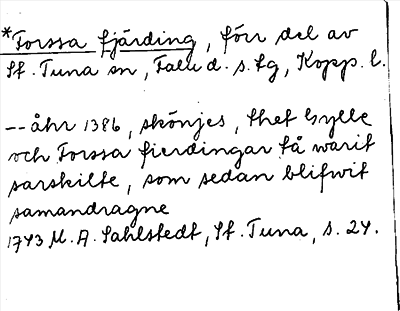 *Forssa fjärding, förr del av
St. Tuna sn, Falu d. s. lg, Kopp. l.
-- åhr 1386, skönjes, thet Gylle
och Forssa fierdingar tå warit
sarskilte, som sedan blifwit
samandragne
1743 M. A. Sahlstedt, St. Tuna, s. 24.